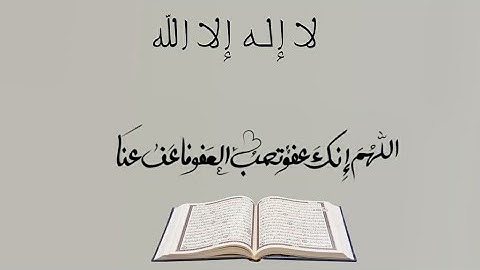 لا إله إلا الله
اللهم إنك عفو تحب العفو فاعف عنا